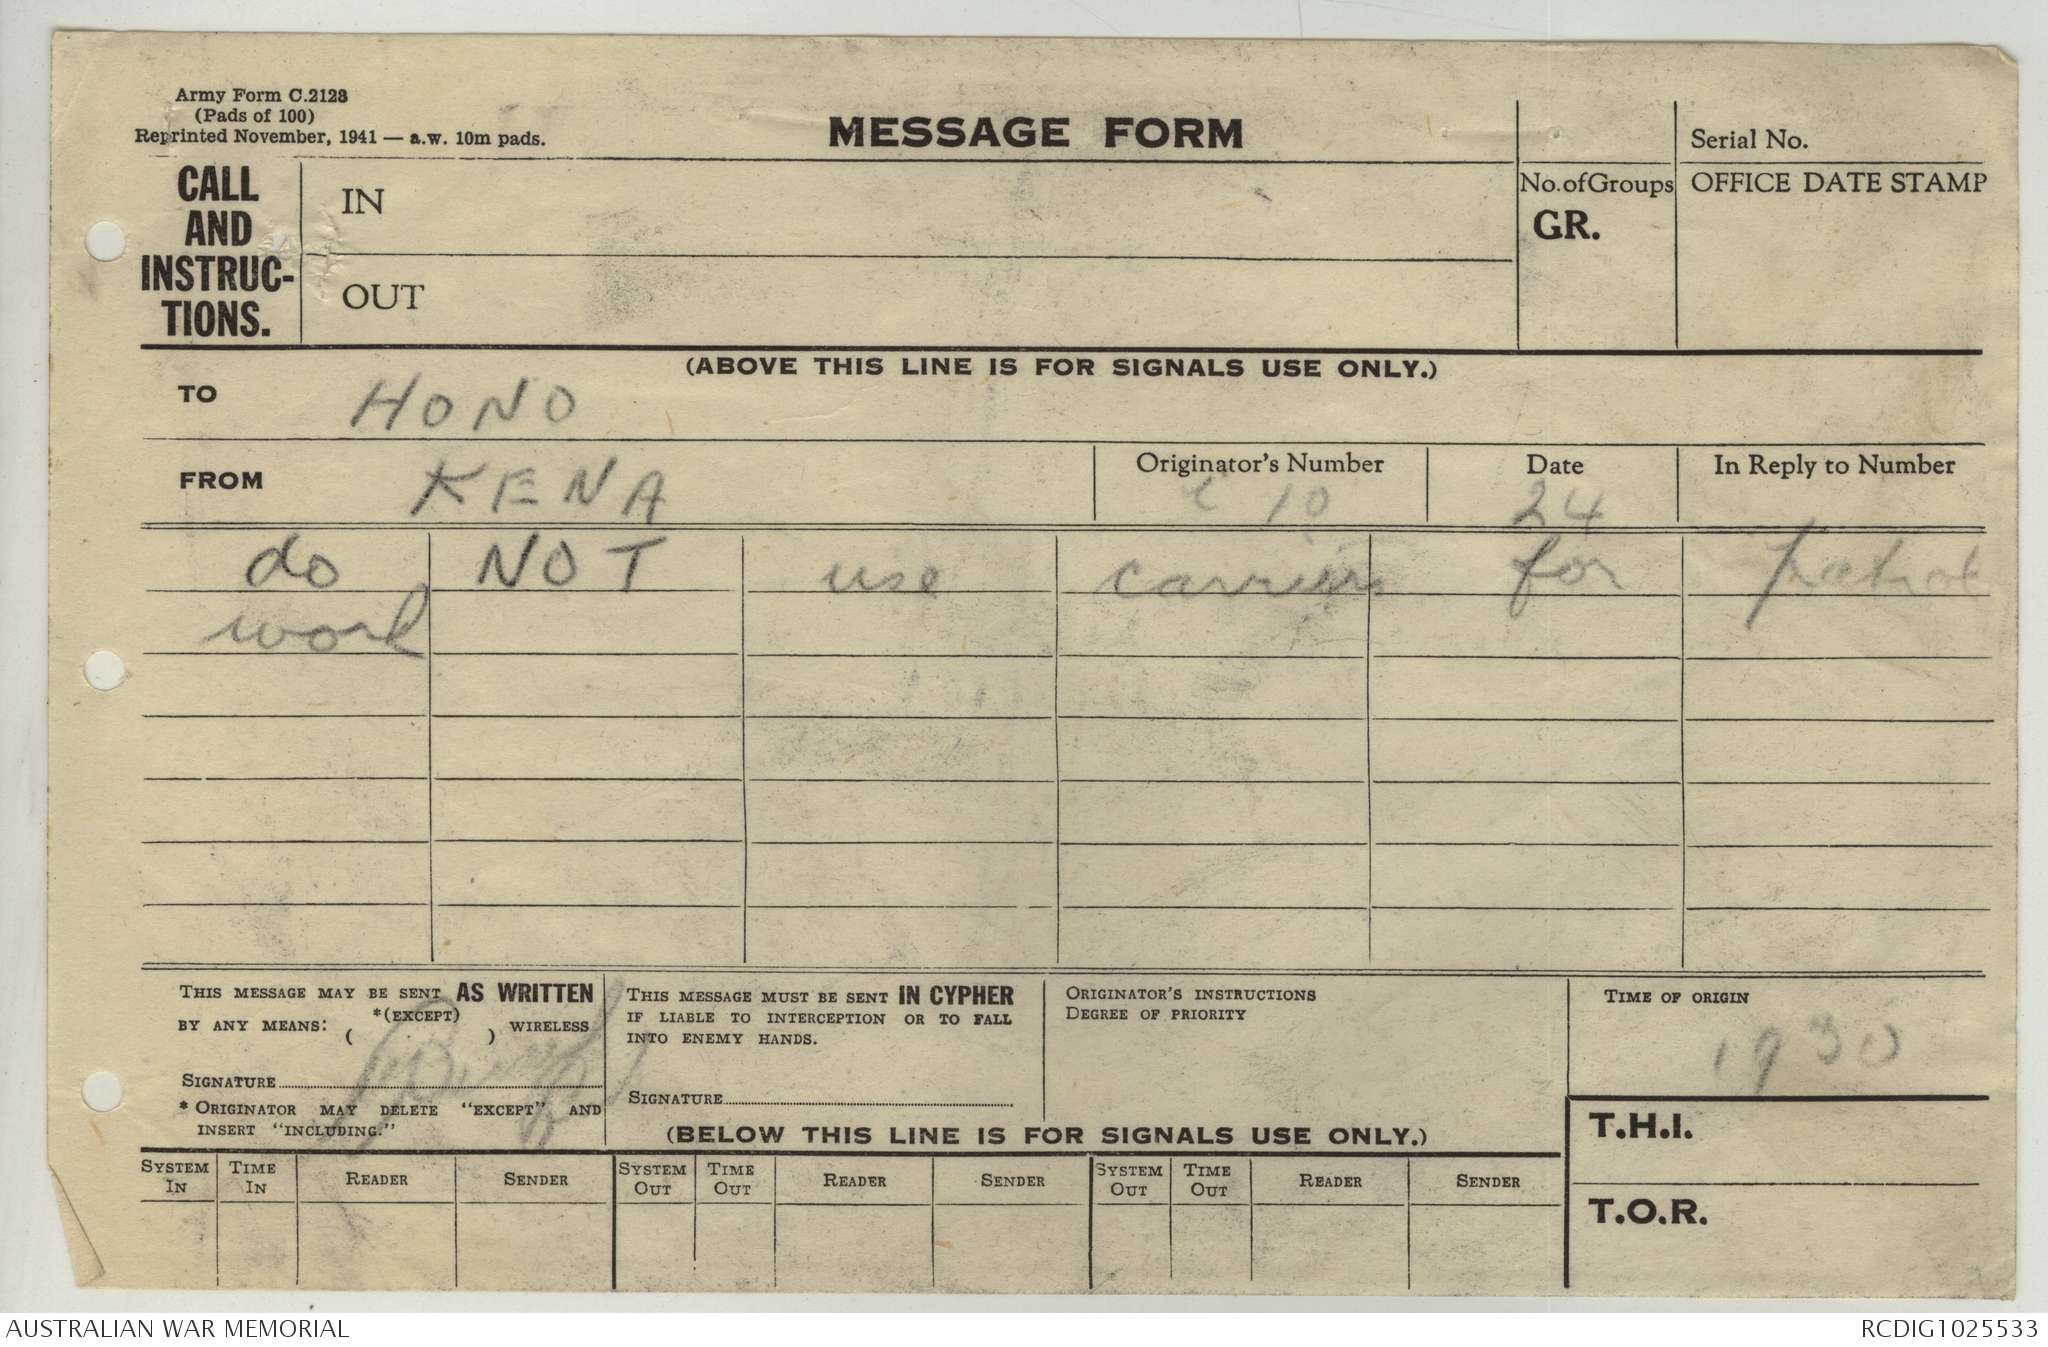 Army Form C.2128
(Pads of 100)
Reprinted November, 1941 — a.w. 10m pads.
MESSAGE FORM
Serial No.
CALL
AND
INSTRUC-
TIONS.
IN
OUT
No. of Groups
GR.
OFFICE DATE STAMP
(ABOVE THIS LINE IS FOR SIGNALS USE ONLY.)
TO HONO
FROM KENA
Originator's Number
C 10
Date
24
In Reply to Number
do NOT use carriers for patrol
work
THIS MESSAGE MAY BE SENT AS WRITTEN
BY ANY MEANS: *(EXCEPT) ( ) WIRELESS
SIGNATURE
* ORIGINATOR MAY DELETE "EXCEPT" AND
INSERT "INCLUDING."
THIS MESSAGE MUST BE SENT IN CYPHER
IF LIABLE TO INTERCEPTION OR TO FALL
INTO ENEMY HANDS.
SIGNATURE
ORIGINATOR'S INSTRUCTIONS
DEGREE OF PRIORITY
TIME OF ORIGIN
1930
(BELOW THIS LINE IS FOR SIGNALS USE ONLY.)
T.H.I.
T.O.R.
SYSTEM IN TIME IN READER SENDER SYSTEM OUT TIME OUT READER SENDER SYSTEM OUT TIME OUT READER SENDER
AUSTRALIAN WAR MEMORIAL
RCDIG1025533